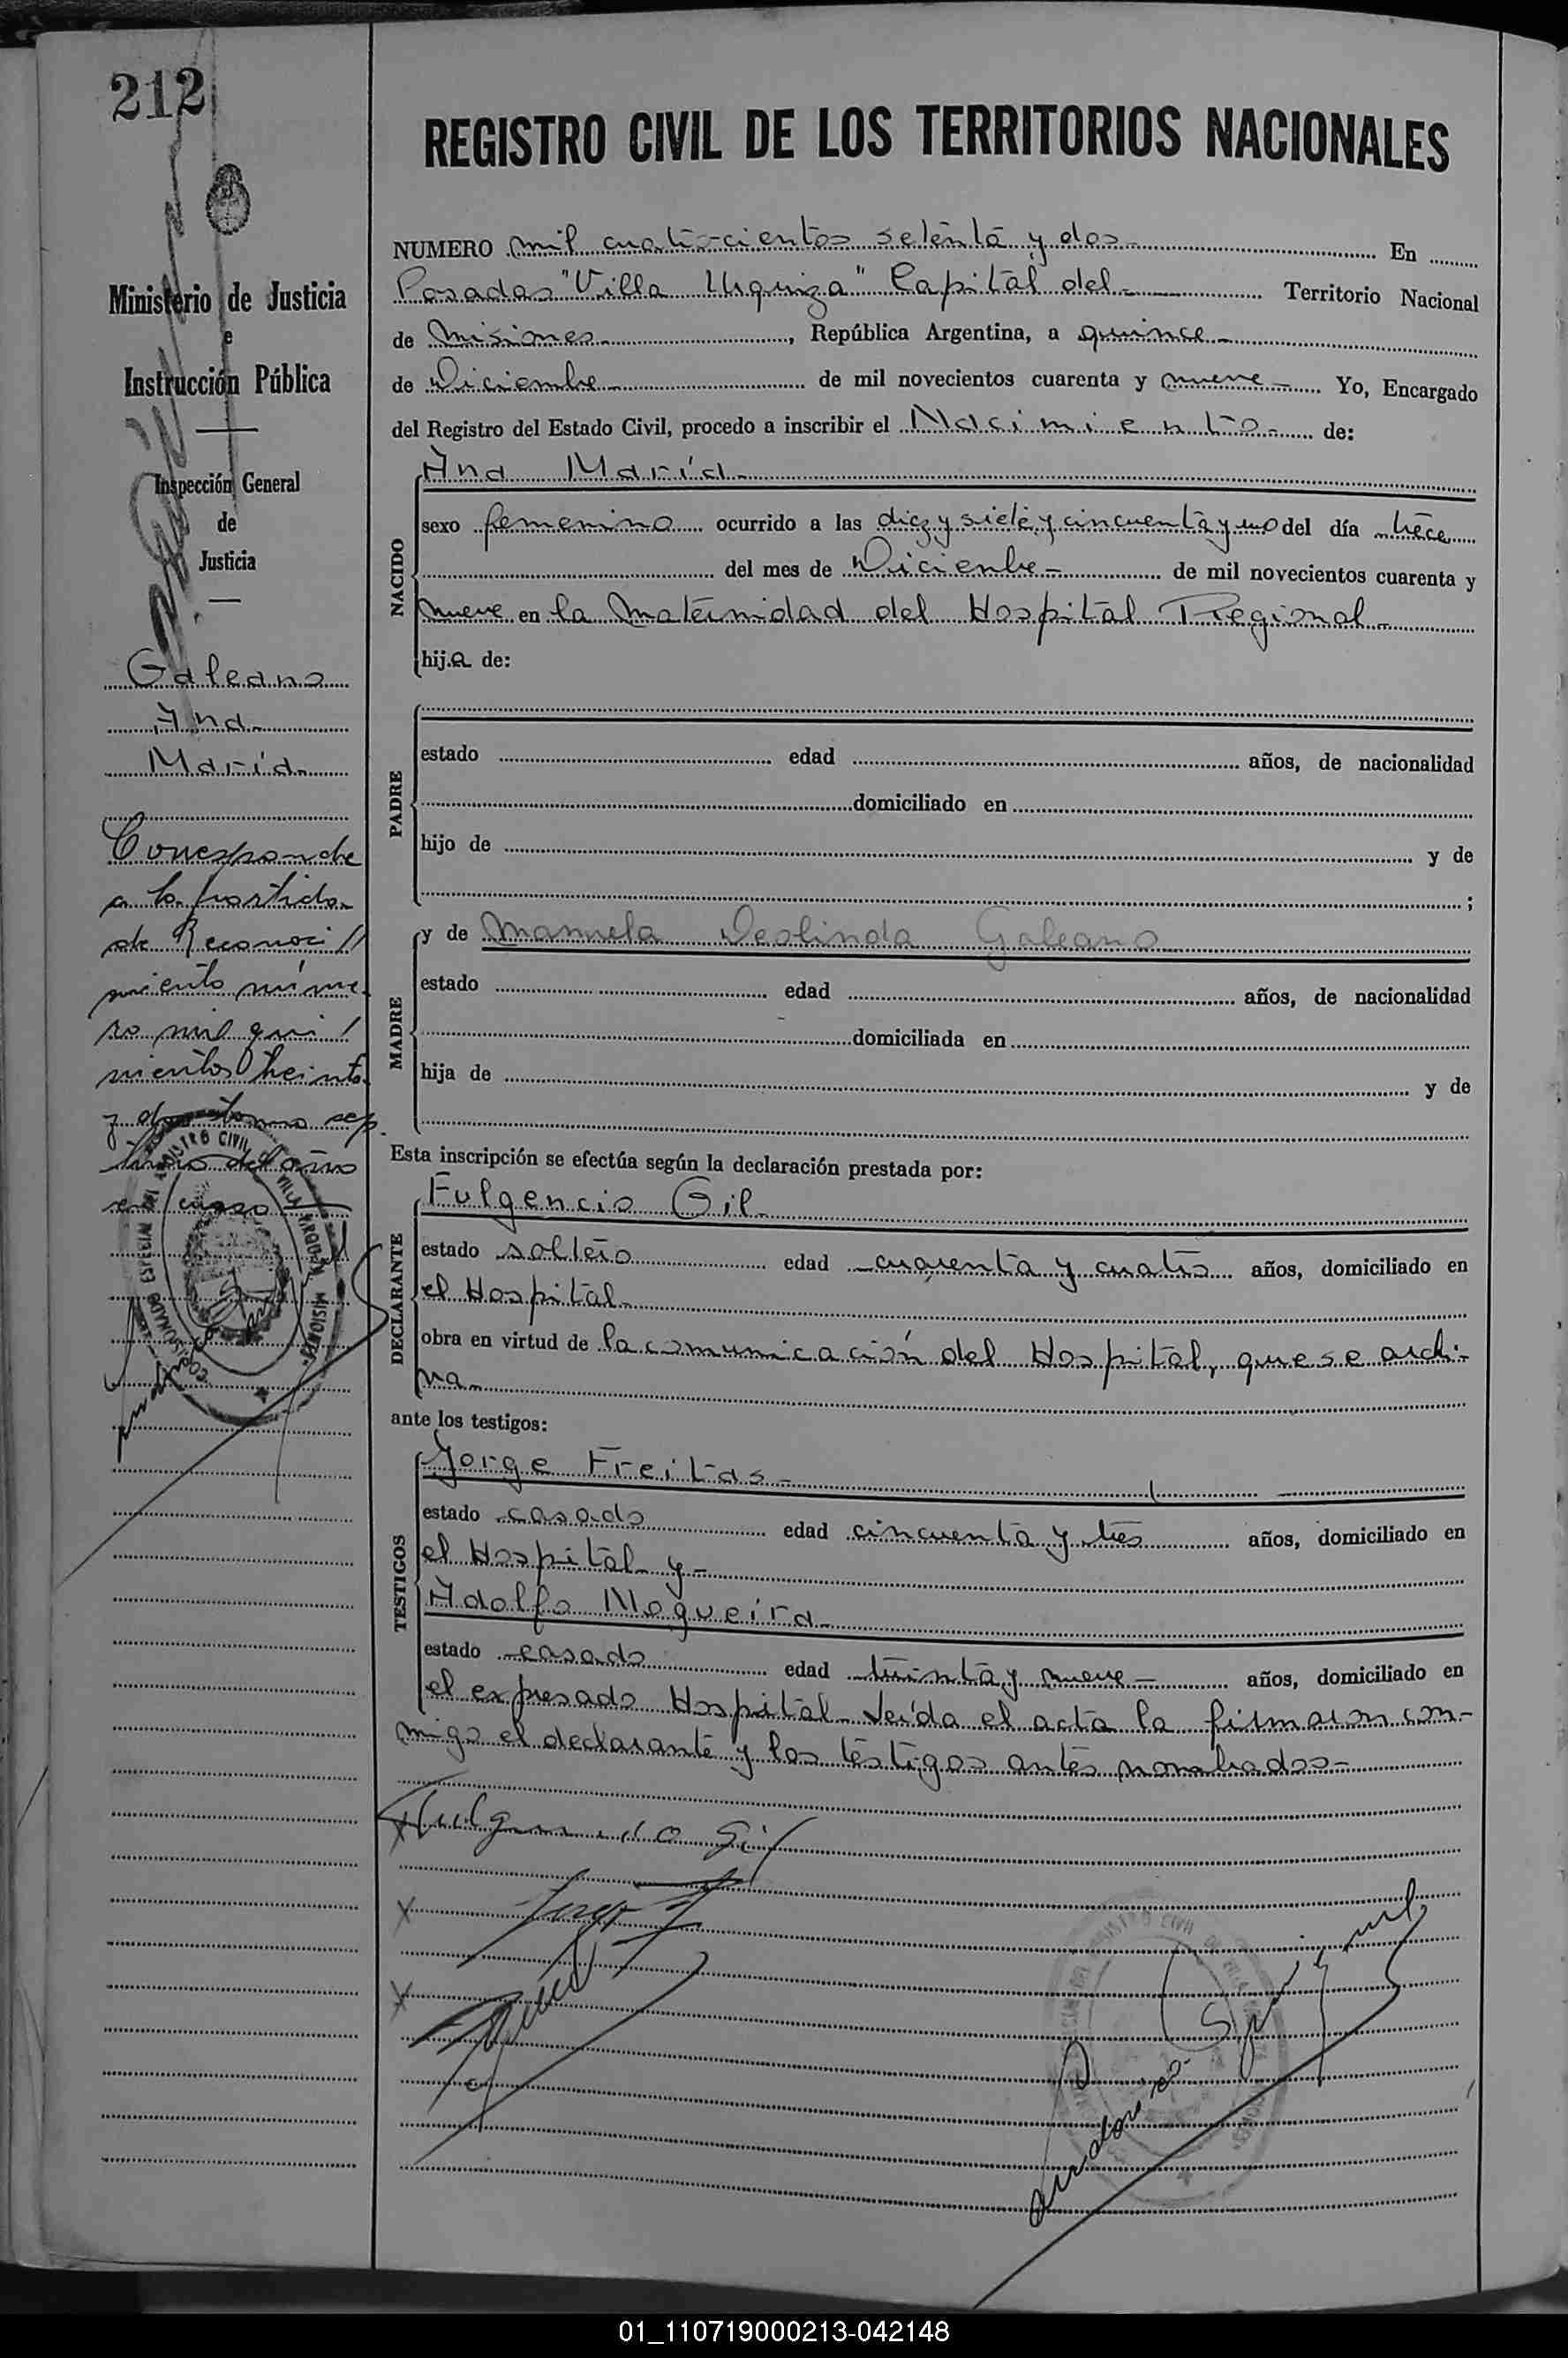 212
REGISTRO CIVIL DE LOS TERRITORIOS NACIONALES
Ministerio de Justicia
e
Instrucción Pública
Inspección General
de
Justicia
Galeano
Ana
María
Corresponde
a la partida
de Reconoci//
miento núme-
ro mil qui/
nientos treinta
y dos tomo sép
timo del año
en curso
NUMERO mil cuatrocientos setenta y dos En
Posadas "Villa Urquiza" Capital del Territorio Nacional
de Misiones, República Argentina, a quince
de Diciembre de mil novecientos cuarenta y nueve Yo, Encargado
del Registro del Estado Civil, procedo a inscribir el Nacimiento de:
NACIDO
Ana María
sexo femenino ocurrido a las diez y siete y cincuenta y uno del día trece
del mes de Diciembre de mil novecientos cuarenta y
nueve en la Maternidad del Hospital Regional
hija de:
PADRE
estado edad años, de nacionalidad
domiciliado en
hijo de y de
;
MADRE
y de Manuela Deolinda Galeano
estado edad años, de nacionalidad
domiciliada en
hija de y de
Esta inscripción se efectúa según la declaración prestada por:
DECLARANTE
Fulgencio Gil
estado soltero edad cuarenta y cuatro años, domiciliado en
el Hospital
obra en virtud de la comunicación del Hospital, que se archi-
va
ante los testigos:
TESTIGOS
Jorge Freitas
estado casado edad cincuenta y tres años, domiciliado en
el Hospital y
Adolfo Nogueira
estado casado edad treinta y nueve años, domiciliado en
el expresado Hospital. Leída el acta la firmaron con-
migo el declarante y los testigos antes nombrados
Fulgencio Gil
01_110719000213-042148